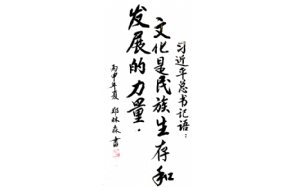 习近平总书记语：
文化是民族生存和
发展的力量.
丙申年夏 郑林森書